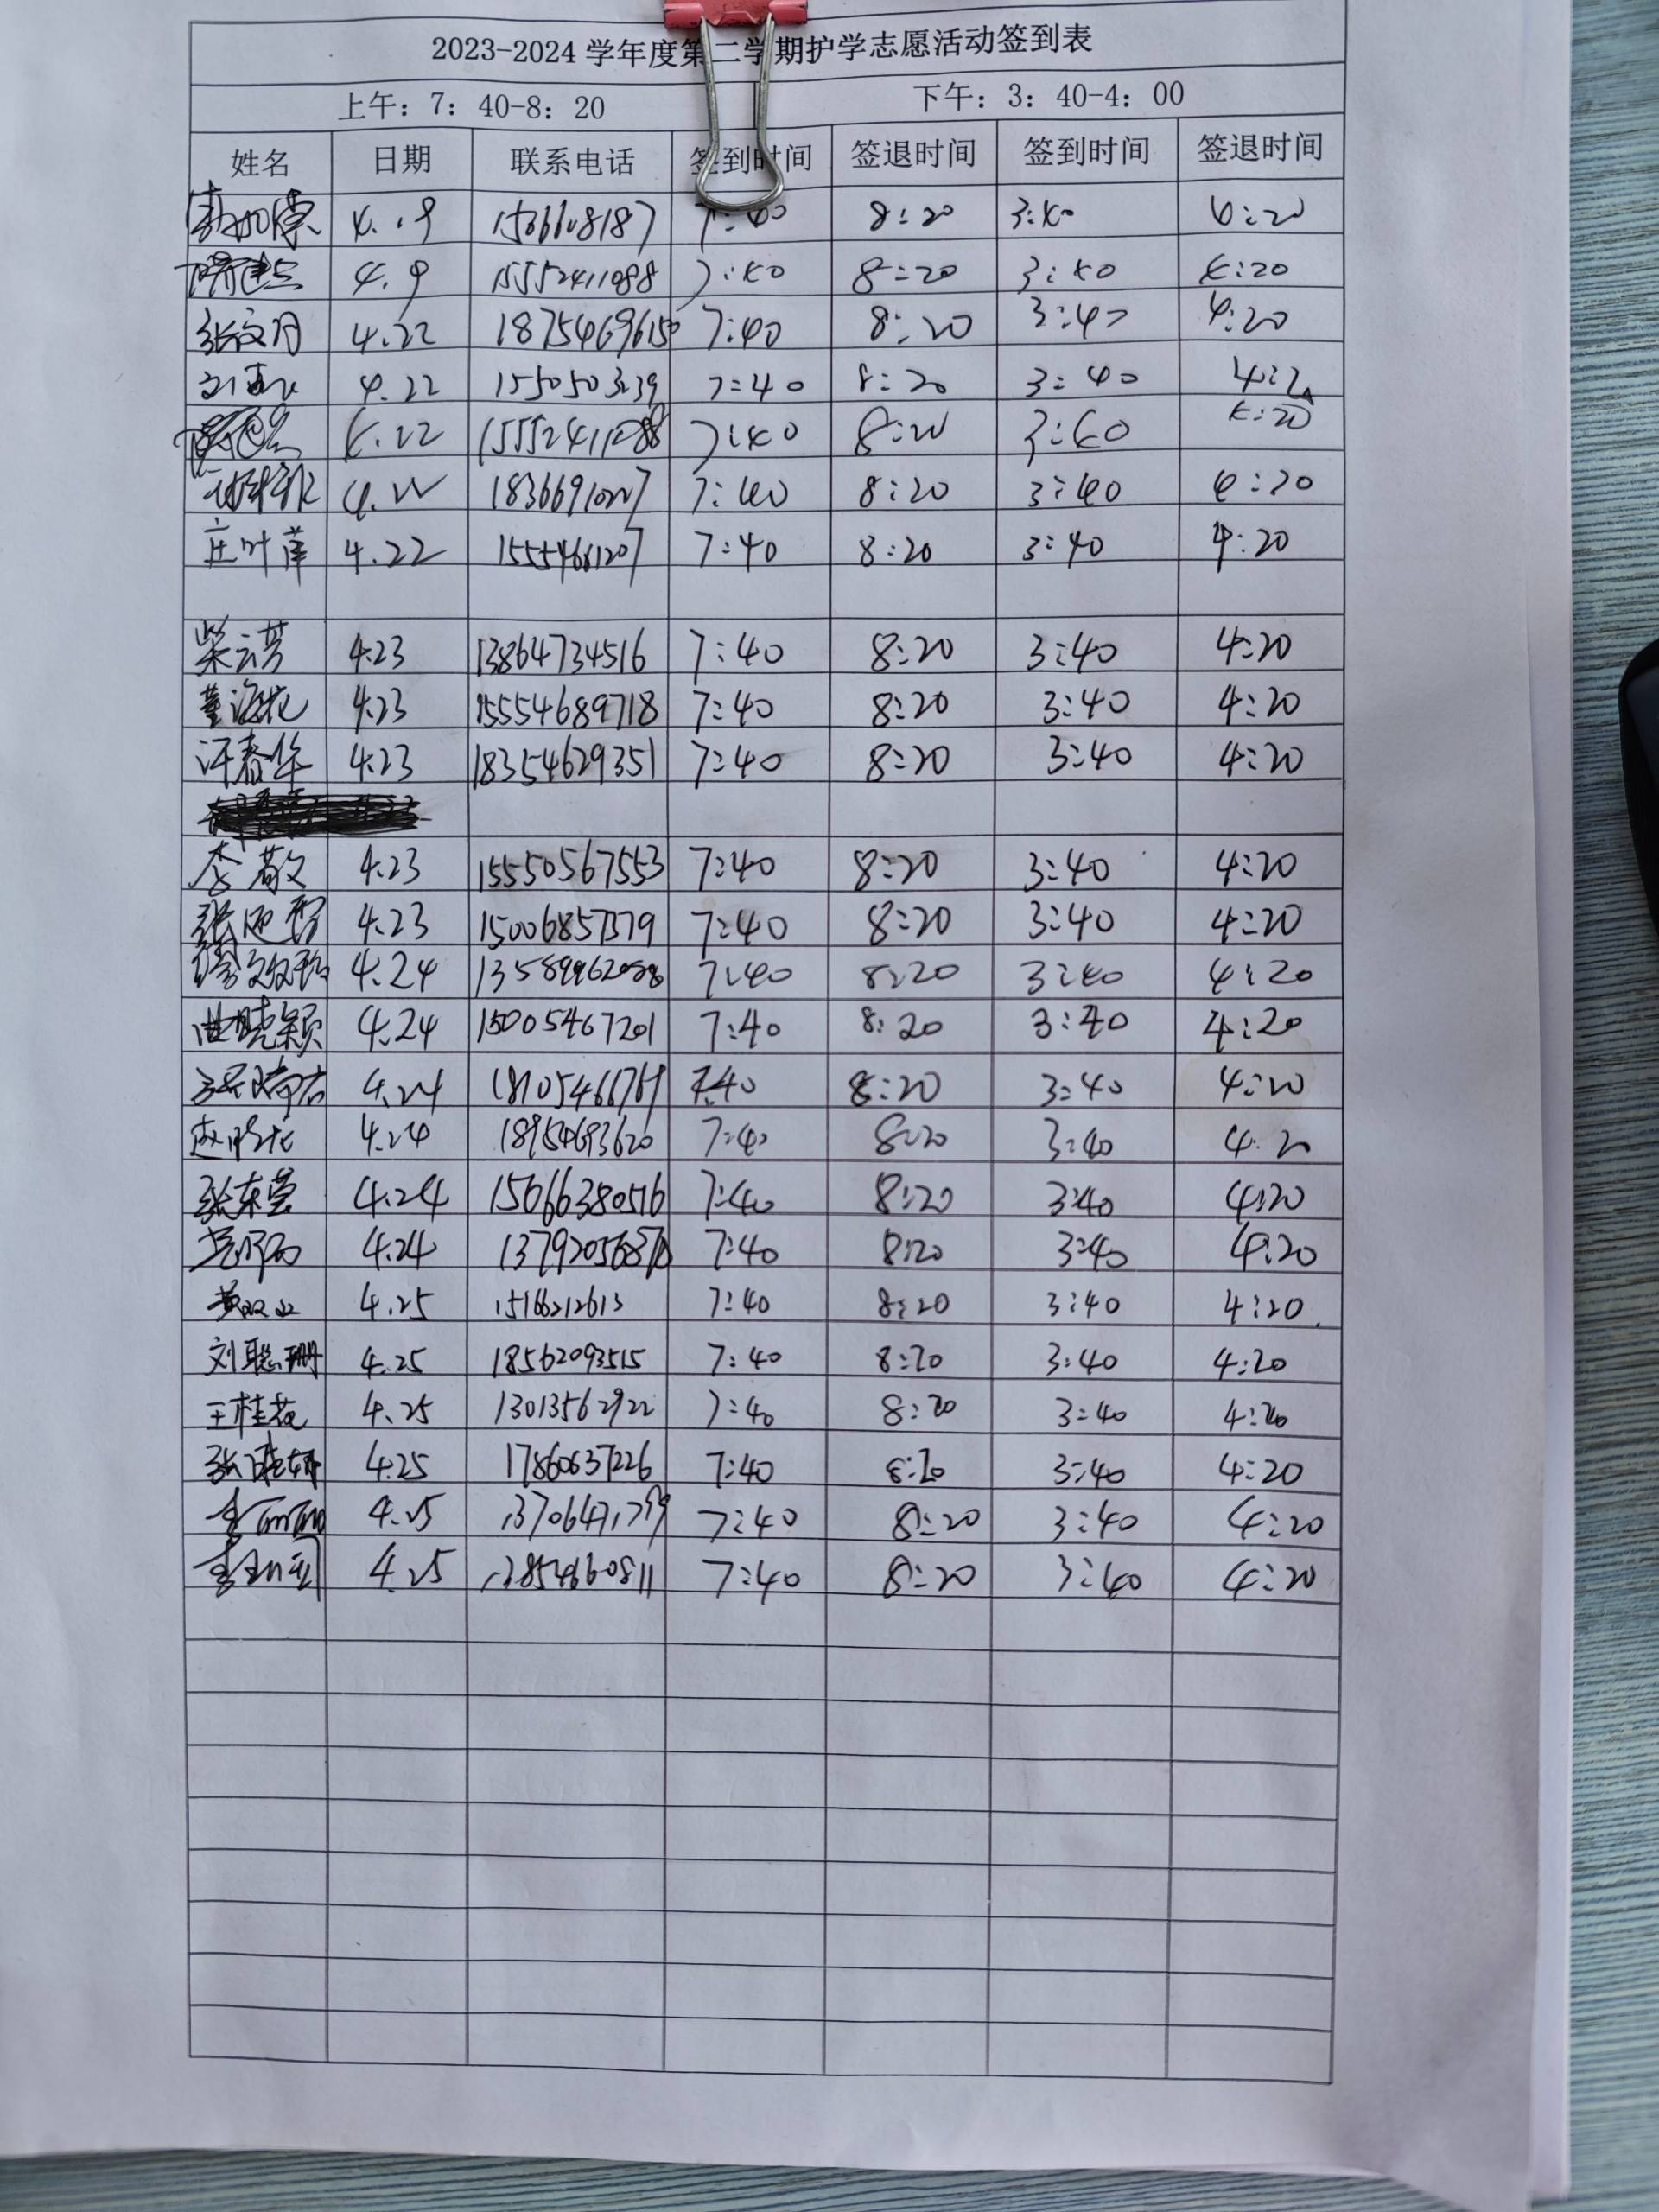 2023-2024 学年度第二学期护学志愿活动签到表
上午：7：40-8：20 下午：3：40-4：00
姓名 日期 联系电话 签到时间 签退时间 签到时间 签退时间
4.19 8:20 3:40 4:20
4.9 15552411088 7:40 8:20 3:40 4:20
张文月 4.22 18754696150 7:40 8:20 3:40 4:20
4.22 7:40 8:20 3:40
4.22 15552411088 7:40 8:20 3:40 4:20
4.22 7:40 8:20 3:40 4:20
庄叶萍 4.22 15554661207 7:40 8:20 3:40 4:20
柴云芳 4.23 13864734516 7:40 8:20 3:40 4:20
董海花 4.23 15554689718 7:40 8:20 3:40 4:20
许春华 4.23 18354629351 7:40 8:20 3:40 4:20
李敬 4.23 15550567553 7:40 8:20 3:40 4:20
4.23 15006857379 7:40 8:20 3:40 4:20
4.24 7:40 8:20 3:40 4:20
曲晓颖 4.24 15005467201 7:40 8:20 3:40 4:20
4.24 18105466769 7:40 8:20 3:40 4:20
4.24 18954693620 7:40 8:20 3:40 4:20
张东莹 4.24 15066380516 7:40 8:20 3:40 4:20
4.24 7:40 8:20 3:40 4:20
黄双双 4.25 15166212613 7:40 8:20 3:40 4:20
刘聪珊 4.25 18562093515 7:40 8:20 3:40 4:20
王桂花 4.25 13013562922 7:40 8:20 3:40 4:20
4.25 17860637226 7:40 8:20 3:40 4:20
4.25 13706471799 7:40 8:20 3:40 4:20
4.25 13854660811 7:40 8:20 3:40 4:20